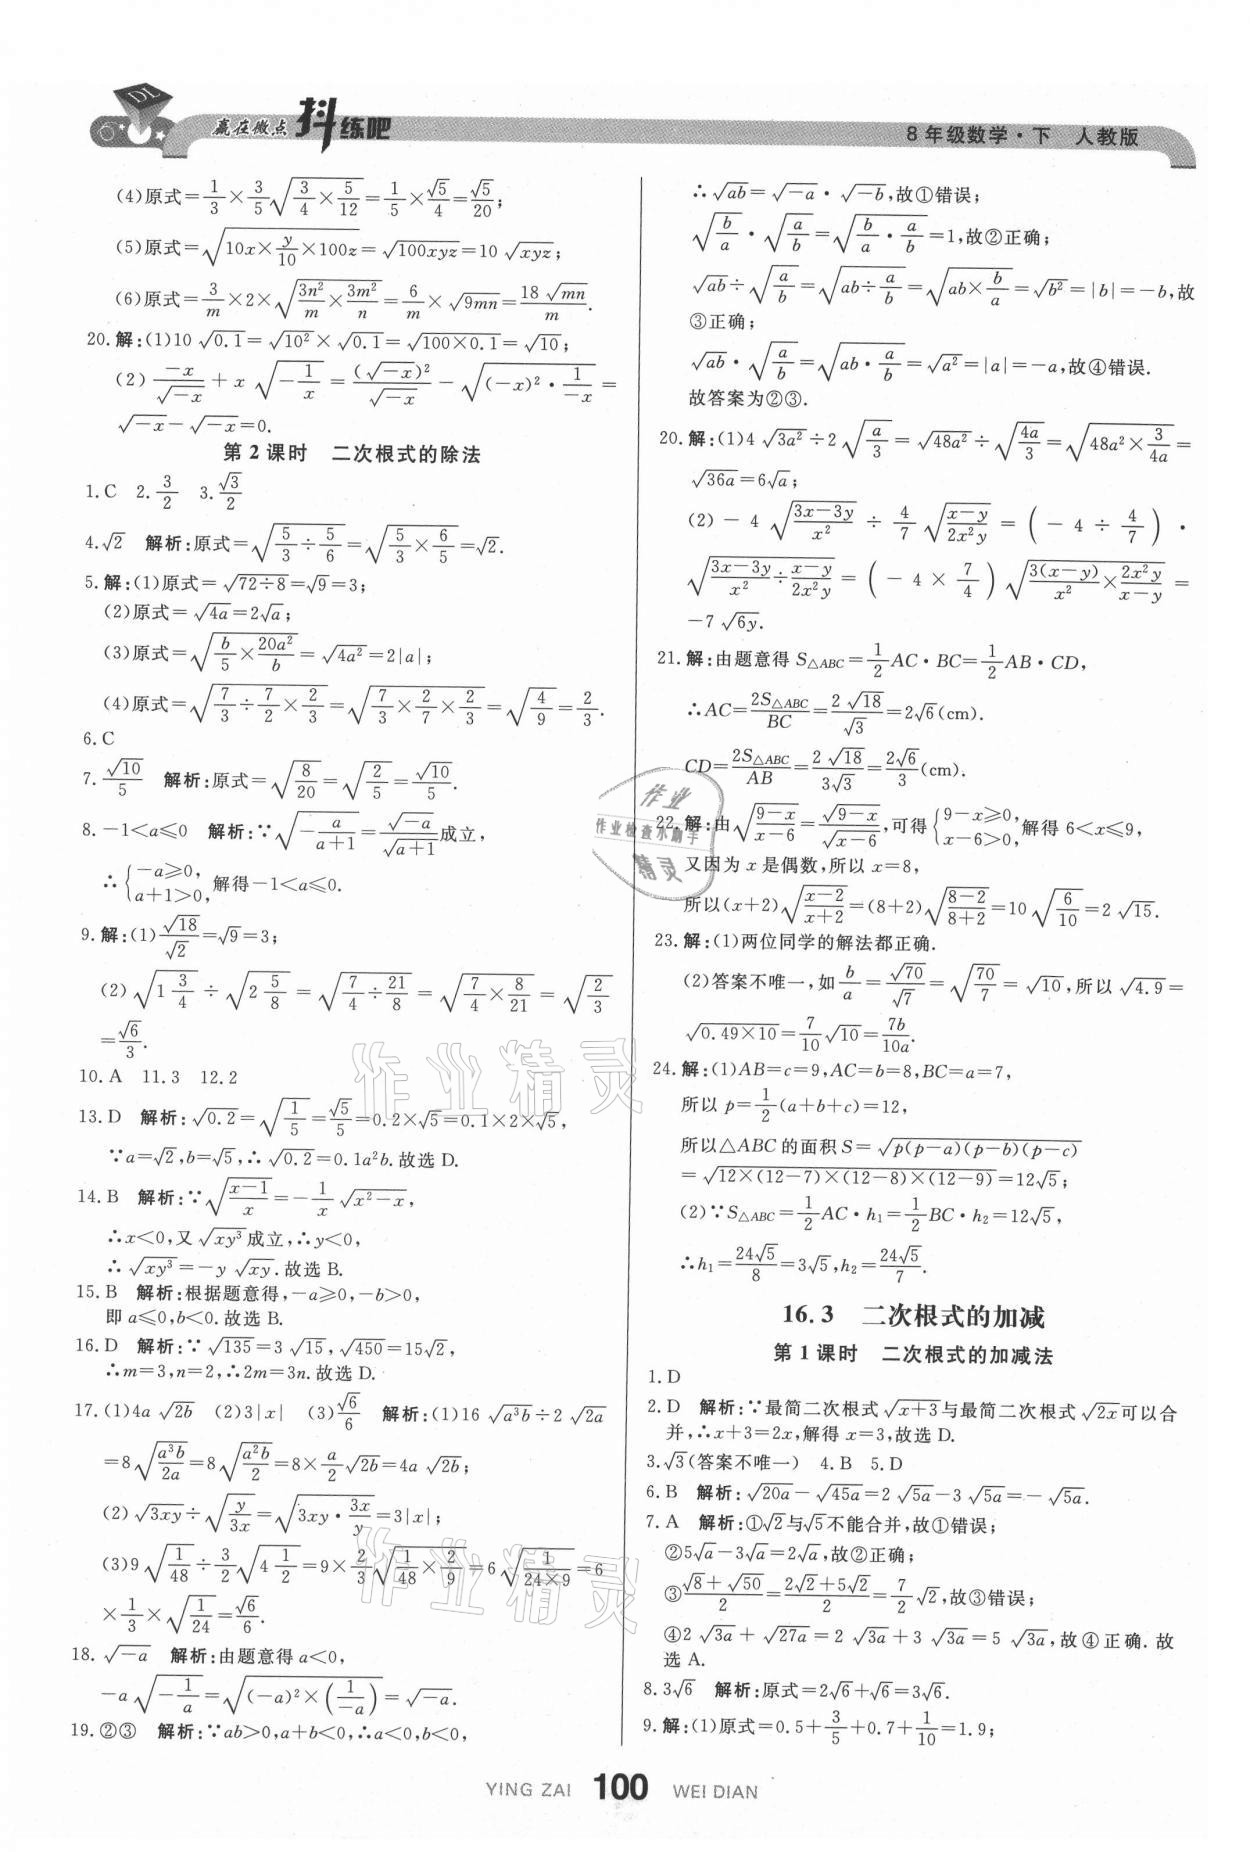 DL
赢在微点 抖练吧
8年级数学·下 人教版
(4)原式=1/3×3/5√(3/4×5/12)=1/5×√5/4=√5/20;
(5)原式=√(10x×y/10×100z)=√(100xyz)=10√(xyz);
(6)原式=3/m×2×√(3n²/m×3m²/n)=6/m×√(9mn)=18√(mn)/m.
20.解:(1)10√0.1=√10²×√0.1=√(100×0.1)=√10;
(2)-x/√(-x)+x√(-1/x)=(√(-x))²/√(-x)-√((-x)²·1/(-x))=
√(-x)-√(-x)=0.
第2课时 二次根式的除法
1.C 2.3/2 3.√3/2
4.√2 解析:原式=√(5/3÷5/6)=√(5/3×6/5)=√2.
5.解:(1)原式=√(72÷8)=√9=3;
(2)原式=√(4a)=2√a;
(3)原式=√(b/5×20a²/b)=√(4a²)=2|a|;
(4)原式=√(7/3÷7/2×2/3)=√(7/3×2/7×2/3)=√(4/9)=2/3.
6.C
7.√10/5 解析:原式=√(8/20)=√(2/5)=√10/5.
8.-1<a≤0 解析:∵√(-a/(a+1))=√(-a)/√(a+1)成立,
∴{-a≥0, a+1>0, 解得-1<a≤0.
9.解:(1)√18/√2=√9=3;
(2)√(1 3/4)÷√(2 5/8)=√(7/4÷21/8)=√(7/4×8/21)=√(2/3)
=√6/3.
10.A 11.3 12.2
13.D 解析:√0.2=√(1/5)=√5/5=0.2×√5=0.1×2×√5,
∵a=√2,b=√5,∴√0.2=0.1a²b.故选D.
14.B 解析:∵√((x-1)/x)=-1/x√(x²-x),
∴x<0,又√(xy³)成立,∴y<0,
∴√(xy³)=-y√(xy).故选B.
15.B 解析:根据题意得,-a≥0,-b>0,
即a≤0,b<0.故选B.
16.D 解析:∵√135=3√15,√450=15√2,
∴m=3,n=2,∴2m=3n.故选D.
17.(1)4a√(2b) (2)3|x| (3)√6/6 解析:(1)16√(a³b)÷2√(2a)
=8√(a³b/2a)=8√(a²b/2)=8×a/2√(2b)=4a√(2b);
(2)√(3xy)÷√(y/3x)=√(3xy·3x/y)=3|x|;
(3)9√(1/48)÷3/2√(4 1/2)=9×2/3√(1/48×2/9)=6√(1/(24×9))=6
×1/3×√(1/24)=√6/6.
18.√(-a) 解析:由题意得a<0,
-a√(-1/a)=√((-a)²×(1/-a))=√(-a).
19.②③ 解析:∵ab>0,a+b<0,∴a<0,b<0,
∴√(ab)=√(-a)·√(-b),故①错误;
√(b/a)·√(a/b)=√(b/a·a/b)=1,故②正确;
√(ab)÷√(a/b)=√(ab÷a/b)=√(ab×b/a)=√b²=|b|=-b,故
③正确;
√(ab)·√(a/b)=√(ab·a/b)=√a²=|a|=-a,故④错误.
故答案为②③.
20.解:(1)4√(3a²)÷2√(a/3)=√(48a²)÷√(4a/3)=√(48a²×3/4a)=
√(36a)=6√a;
(2)-4√((3x-3y)/x²)÷4/7√((x-y)/2x²y)=(-4÷4/7)·
√((3x-3y)/x²÷(x-y)/2x²y)=(-4×7/4)√(3(x-y)/x²×2x²y/(x-y))=
-7√(6y).
21.解:由题意得S△ABC=1/2AC·BC=1/2AB·CD,
∴AC=2S△ABC/BC=2√18/√3=2√6(cm).
CD=2S△ABC/AB=2√18/3√3=2√6/3(cm).
22.解:由√((9-x)/(x-6))=√(9-x)/√(x-6),可得{9-x≥0, x-6>0, 解得6<x≤9,
又因为x是偶数,所以x=8,
所以(x+2)√((x-2)/(x+2))=(8+2)√((8-2)/(8+2))=10√(6/10)=2√15.
23.解:(1)两位同学的解法都正确.
(2)答案不唯一,如b/a=√70/√7=√(70/7)=√10,所以√4.9=
√(0.49×10)=7/10√10=7b/10a.
24.解:(1)AB=c=9,AC=b=8,BC=a=7,
所以p=1/2(a+b+c)=12,
所以△ABC的面积S=√(p(p-a)(p-b)(p-c))
=√(12×(12-7)×(12-8)×(12-9))=12√5;
(2)∵S△ABC=1/2AC·h₁=1/2BC·h₂=12√5,
∴h₁=24√5/8=3√5,h₂=24√5/7.
16.3 二次根式的加减
第1课时 二次根式的加减法
1.D
2.D 解析:∵最简二次根式√(x+3)与最简二次根式√(2x)可以合
并,∴x+3=2x,解得x=3,故选D.
3.√3(答案不唯一) 4.B 5.D
6.B 解析:√(20a)-√(45a)=2√(5a)-3√(5a)=-√(5a).
7.A 解析:①√2与√5不能合并,故①错误;
②5√a-3√a=2√a,故②正确;
③(√8+√50)/2=(2√2+5√2)/2=7/2√2,故③错误;
④2√(3a)+√(27a)=2√(3a)+3√(3a)=5√(3a),故④正确.故
选A.
8.3√6 解析:原式=2√6+√6=3√6.
9.解:(1)原式=0.5+3/5+0.7+1/10=1.9;
作业
作业检查小助手
精灵
作业精灵
作业精灵
YING ZAI 100 WEI DIAN